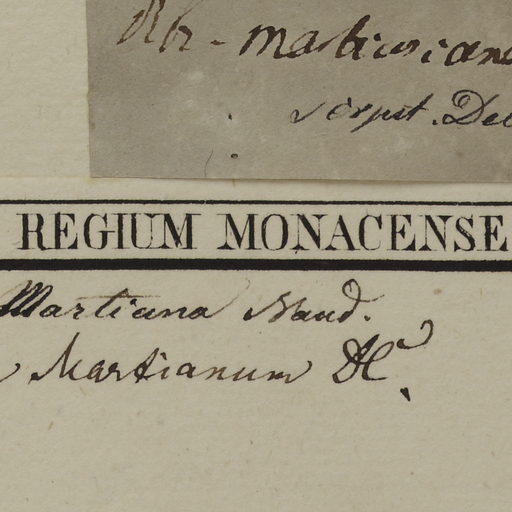 Rh-martiusiana
script. Dec
REGIUM MONACENSE
Martiana Naud.
Martianum DC.